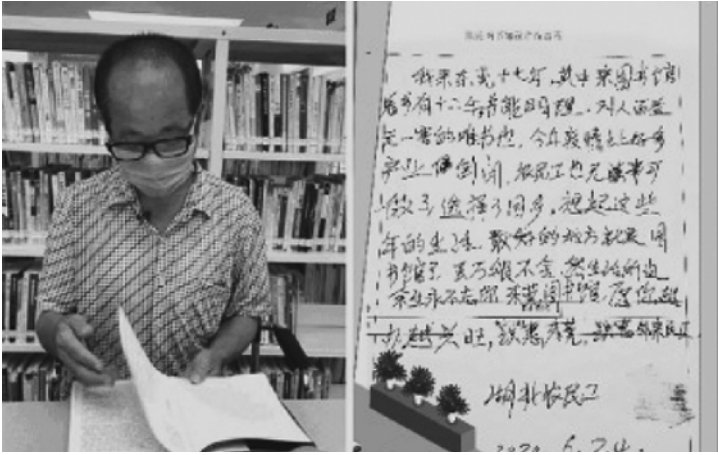 我来东莞十七年,其中来图书馆
看书有十二年,书能明理,对人百益
无一害的唯书也,今年疫情让好多
产业倒闭,农民工也无事可
做了,选择了回乡,想起这些
年的生活,最好的地方就是图
书馆了,虽万般不舍,然生活所迫
余生永不忘你,东莞图书馆,愿你越
办越兴旺,识惠东莞,识惠外来民工
湖北农民工
2020.6.24.